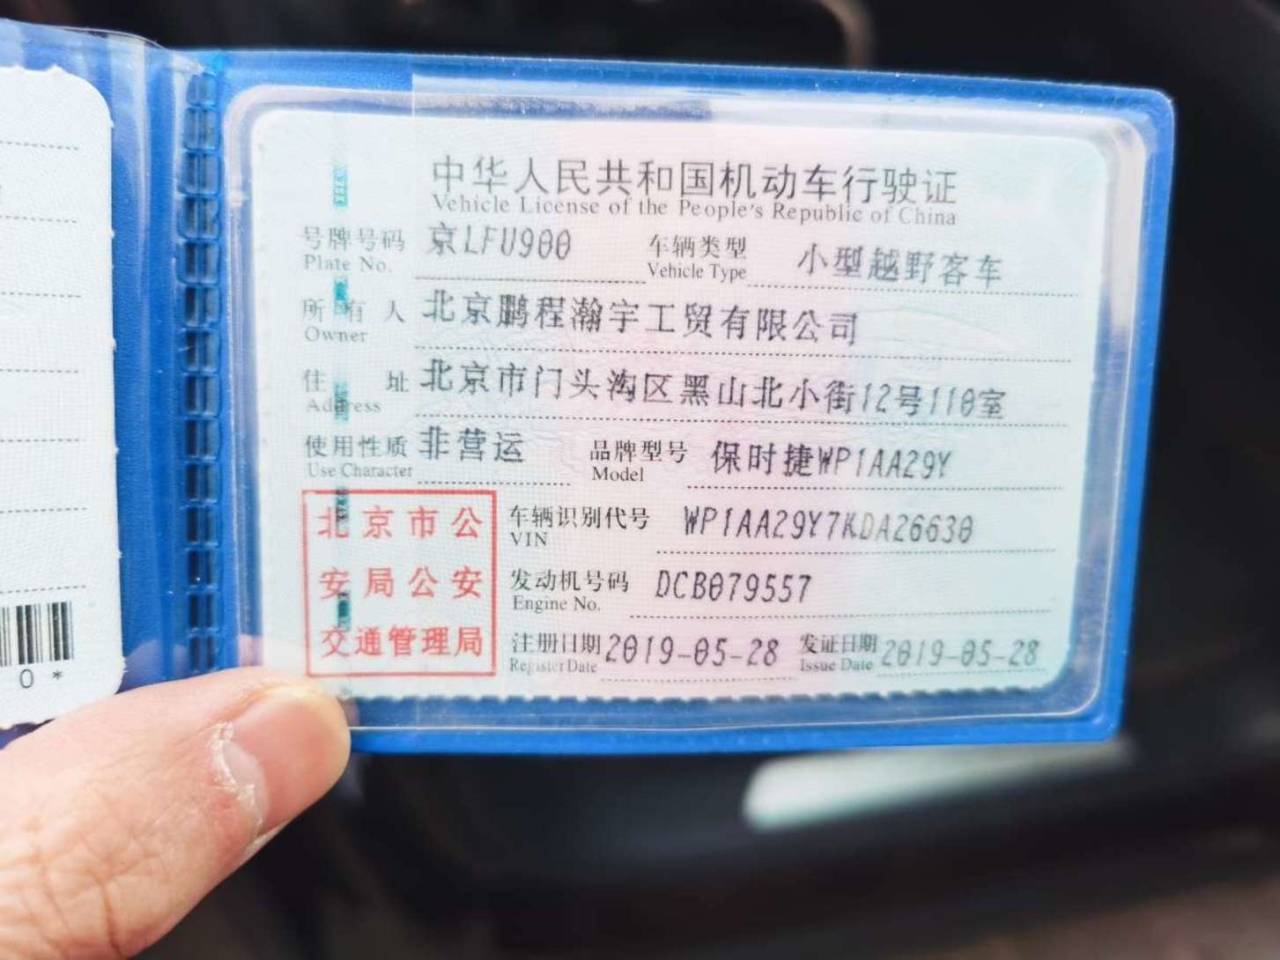 中华人民共和国机动车行驶证
Vehicle License of the People's Republic of China
号牌号码 京LFU900 车辆类型 小型越野客车
Plate No. Vehicle Type
所有人 北京鹏程瀚宇工贸有限公司
Owner
住址 北京市门头沟区黑山北小街12号110室
Address
使用性质 非营运 品牌型号 保时捷WP1AA29Y
Use Character Model
北京市公
安局公安
交通管理局
车辆识别代号 WP1AA29Y7KDA26630
VIN
发动机号码 DCB079557
Engine No.
注册日期 2019-05-28 发证日期 2019-05-28
Register Date Issue Date
0*